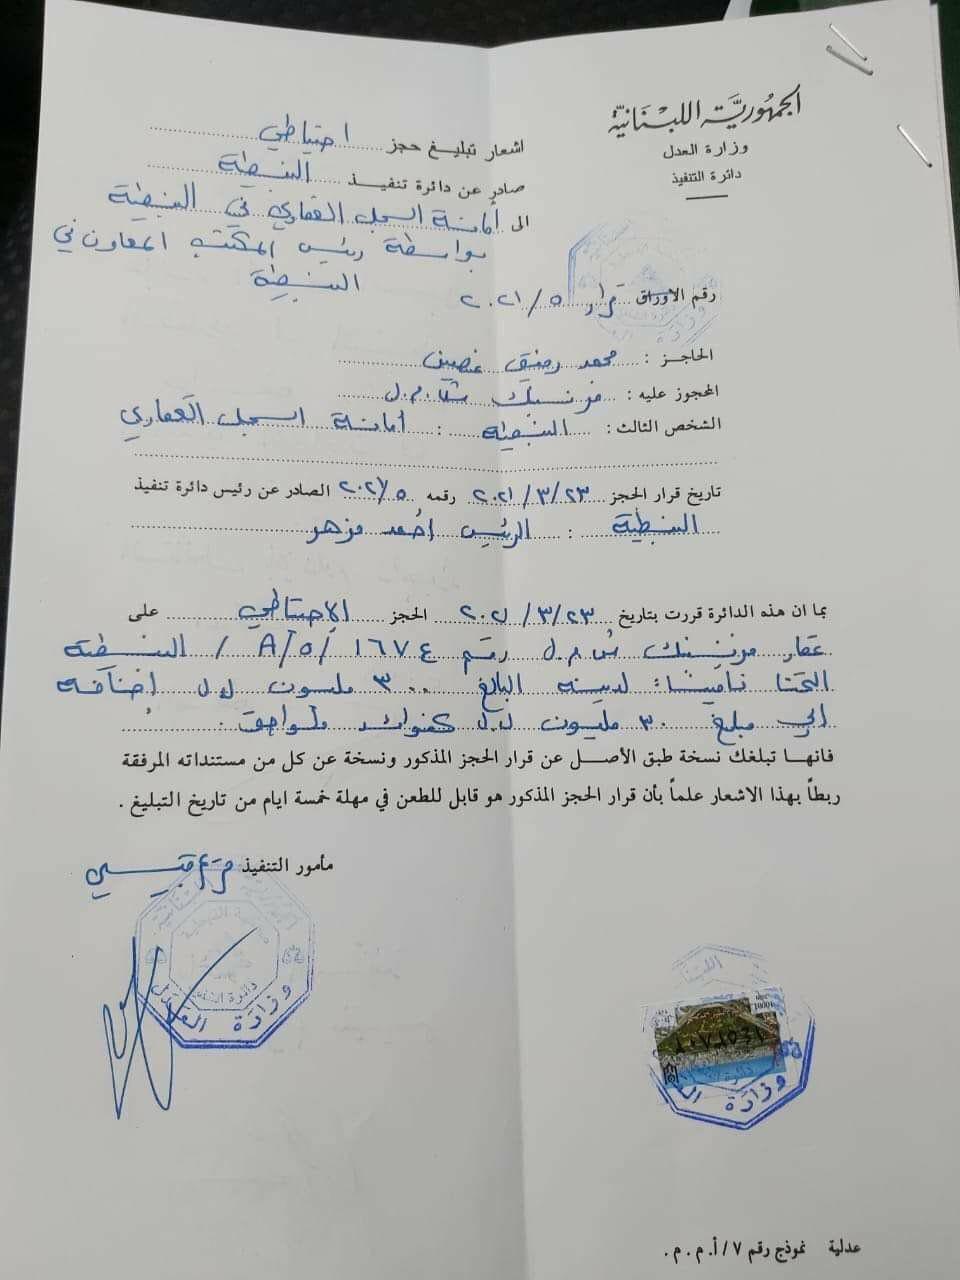 الجمهورية اللبنانية
وزارة العدل
دائرة التنفيذ
اشعار تبليغ حجز احتياطي
صادر عن دائرة تنفيذ النبطية
الى أمانة السجل العقاري في النبطية
بواسطة رئيس المكتب المعاون في
النبطية
رقم الاوراق قرار ٢٠٢١/٥
الحاجز : محمد رفيق غصين
المحجوز عليه : فرنسبنك ش.م.ل
الشخص الثالث : النبطية : أمانة السجل العقاري
تاريخ قرار الحجز ٢٠٢١/٣/٢٣ رقمه ٢٠٢١/٥ الصادر عن رئيس دائرة تنفيذ
النبطية : الرئيس احمد مزهر
بما ان هذه الدائرة قررت بتاريخ ٢٠٢١/٣/٢٣ الحجز الاحتياطي على
عقار فرنسبنك ش.م.ل رقم ١٦٧٤/٥/A / النبطية
التحتا تأمينا لدينه البالغ ٣٠٠ مليون ل.ل إضافة
إلى مبلغ ٣٠ مليون ل.ل كفوائد ولواحق .
فانها تبلغك نسخة طبق الأصل عن قرار الحجز المذكور ونسخة عن كل من مستنداته المرفقة
ربطاً بهذا الاشعار علماً بأن قرار الحجز المذكور هو قابل للطعن في مهلة خمسة ايام من تاريخ التبليغ .
مأمور التنفيذ
الجمهورية اللبنانية
دائرة التنفيذ
وزارة العدل
وزارة العدل
عدلية نموذج رقم ٧ / أ. م. م.